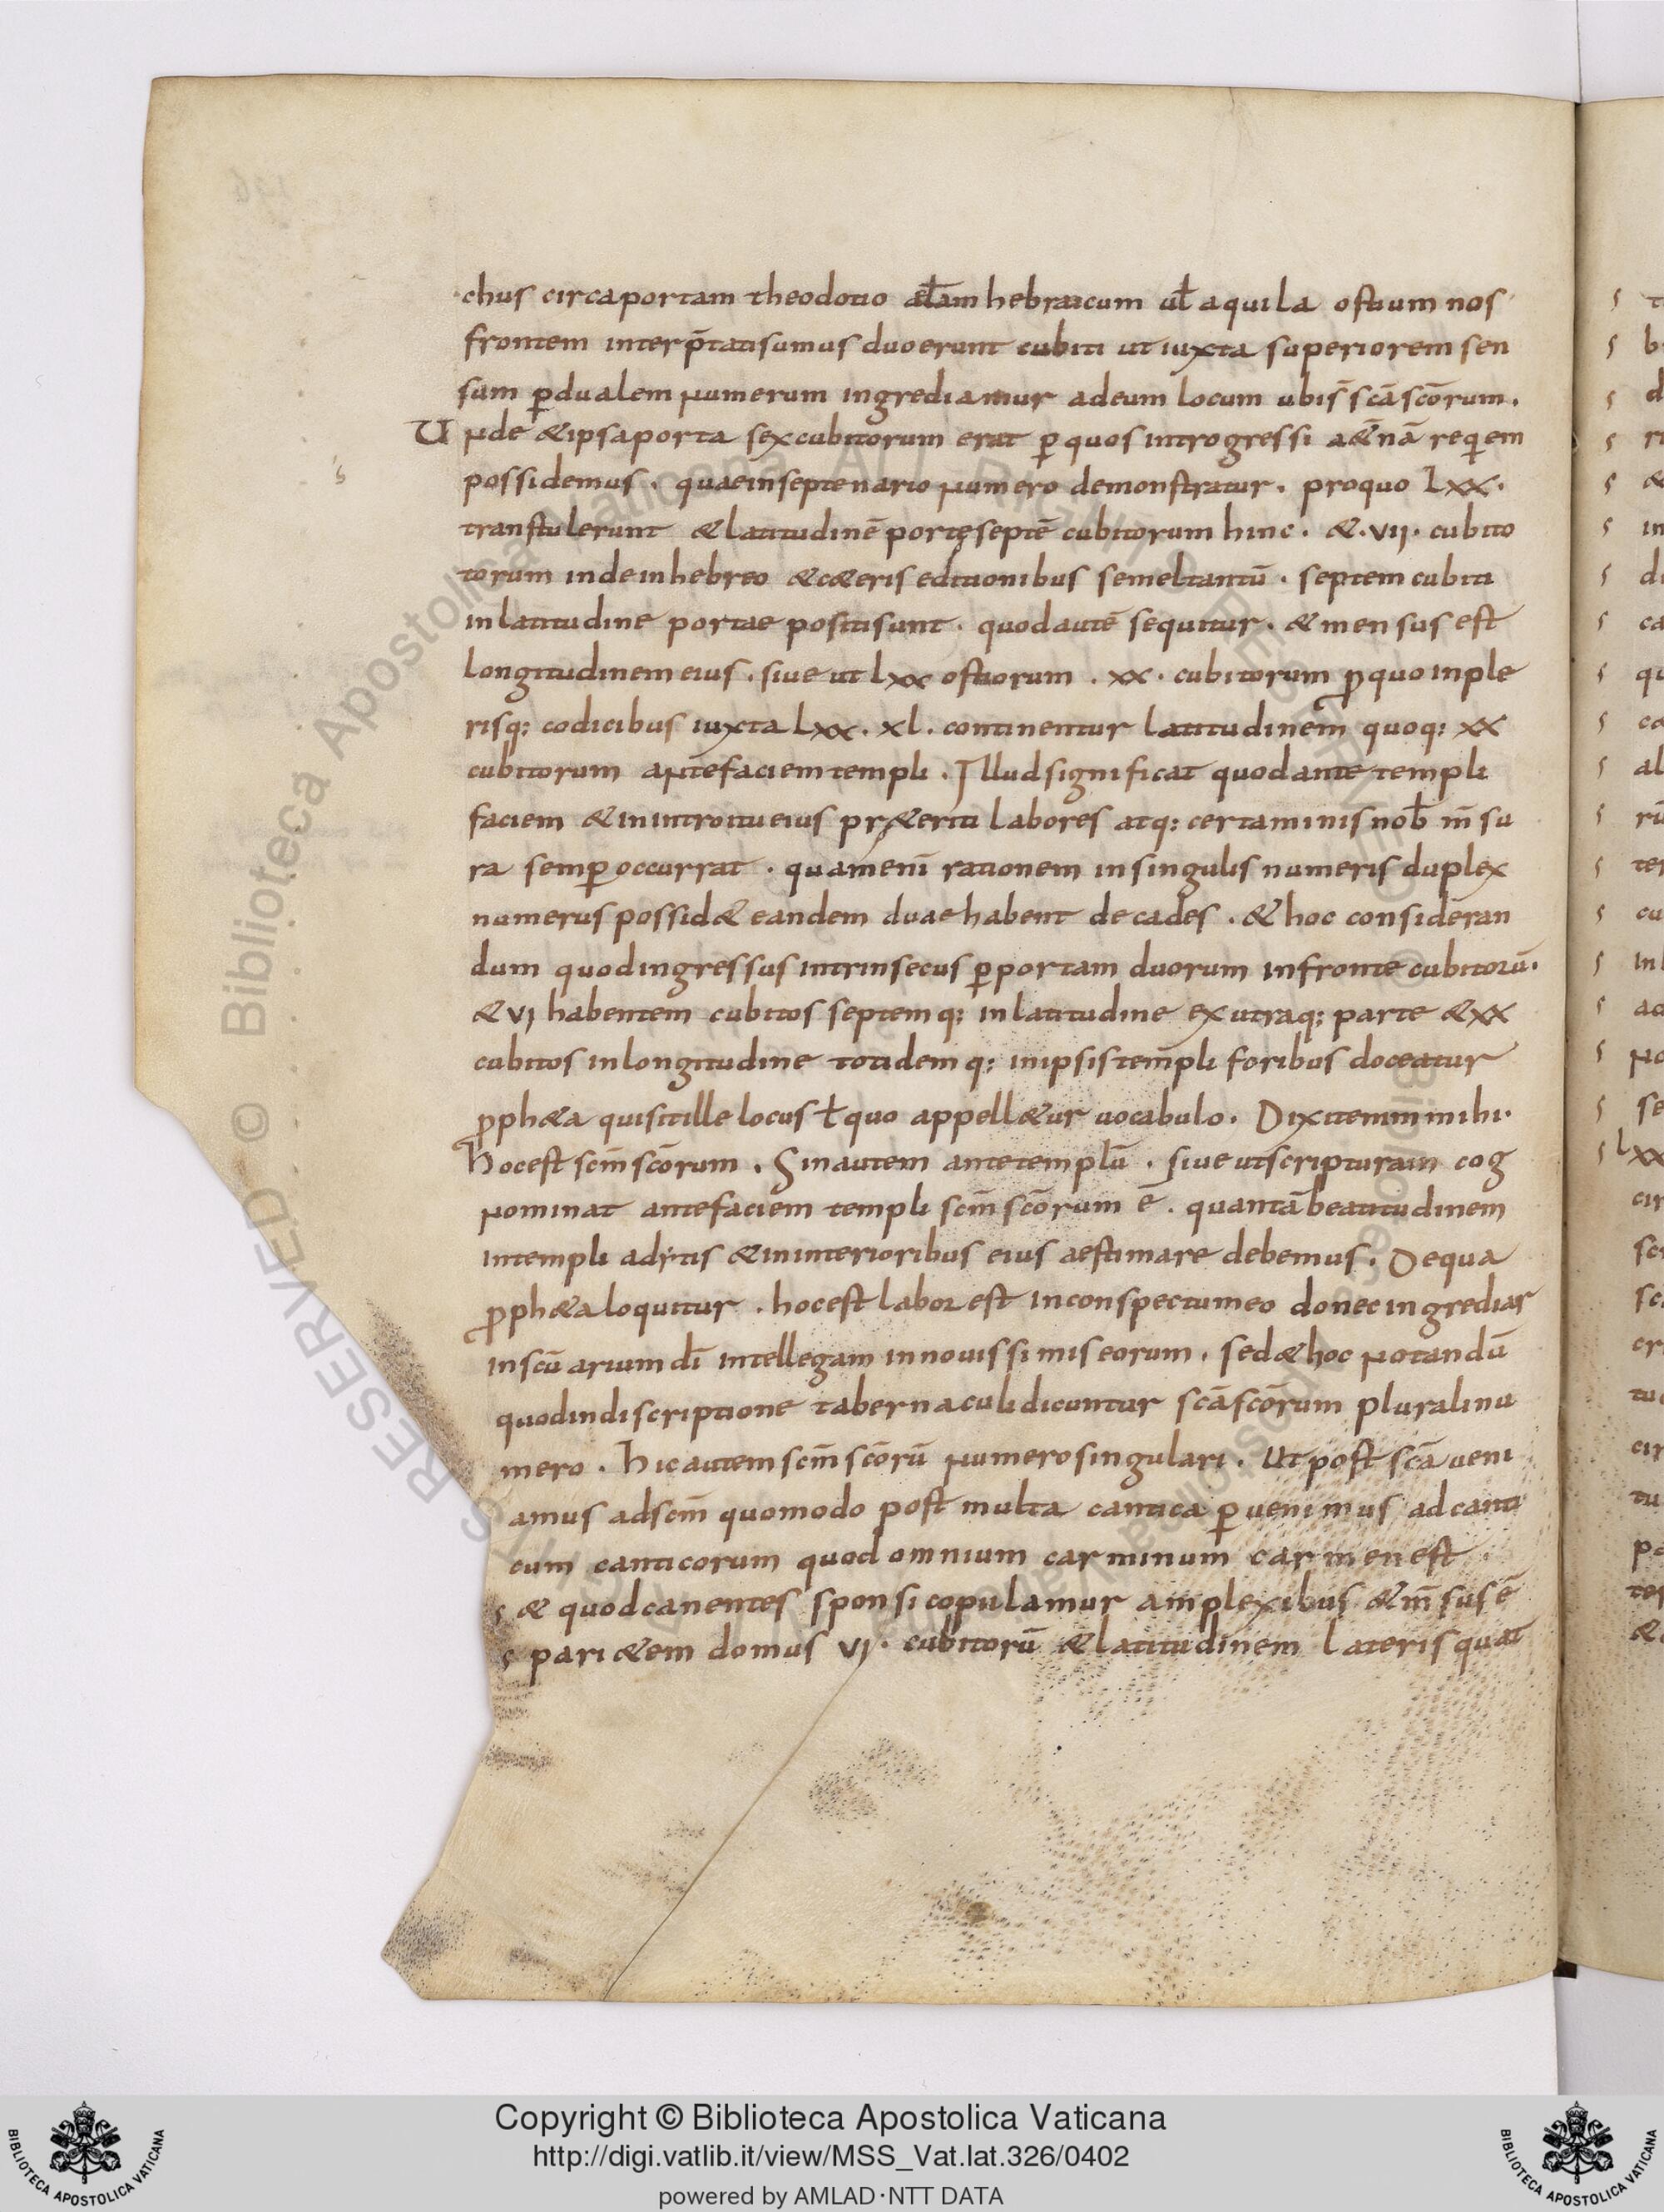 chus circa portam theodotio ael̄am hebraicum ul̄ aquila ostium nos
frontem interp̄tati sumus duo erunt cubiti ut iuxta superiorem sen
sum ꝑ dualem numerum ingrediamur ad eum locum ubi s̄ sc̄a sc̄orum.
Unde & ipsa porta sex cubitorum erat ꝑ quos introgressi a&̄nā requiem
possidemus. quae in septenario numero demonstratur. pro quo lxx.
transtulerunt & latitudinē portę septē cubitorum hinc. &. vii. cubito
torum inde in hebreo & c&eris editionibus semel tantū. septem cubiti
in latitudine portae positi sunt. quod autē sequitur. & mensus est
longitudinem eius. siue ut lxx ostiorum. xx. cubitorum ꝓ quo in ple
risq; codicibus iuxta lxx. xl. continentur latitudinem̄ quoq; xx
cubitorum ante faciem templi. Illud significat quod ante templi
faciem & in introitu eius pr&eriti labores atq; certaminis nob̄ m̄su
ra semꝑ occurrat. quam enī rationem in singulis numeris duplex
numerus possid& eandem duae habent decades. & hoc consideran
dum quod ingressus intrinsecus ꝑ portam duorum in fronte cubitorū.
& vi habentem cubitos septemq; in latitudine ex utraq; parte & xx
cubitos in longitudine totidemq; in ipsis templi foribus doceatur
ꝓph&a qui sit ille locus ł quo appell&ur uocabulo. Dixit enim mihi.
Hoc est scm̄ sc̄orum. Sin autem ante templū. siue ut scripturam cog
nominat ante faciem templi scm̄ sc̄orum ē. quantā beatitudinem
in templi adytis & in interioribus eius aestimare debemus. De qua
ꝓph&a loquitur. hoc est labor est in conspectu meo donec ingrediar
in scū arium dī intellegam in nouissimis eorum. sed & hoc notandū
quod in discriptione tabernaculi dicuntur sc̄a sc̄orum plurali nu
mero. Hic autem scm̄ sc̄orū numero singulari. Ut post sc̄a ueni
amus ad scm̄ quomodo post multa cantica ꝑuenimus ad canti
cum canticorum quod omnium carminum carmen est.
s & quod canentes sponsi copulamur amplexibus & m̄sus ē
s pari&em domus vi. cubitorū & latitudinem lateris quat
Copyright © Biblioteca Apostolica Vaticana
http://digi.vatlib.it/view/MSS_Vat.lat.326/0402
powered by AMLAD·NTT DATA
BIBLIOTECA APOSTOLICA VATICANA
BIBLIOTECA APOSTOLICA VATICANA